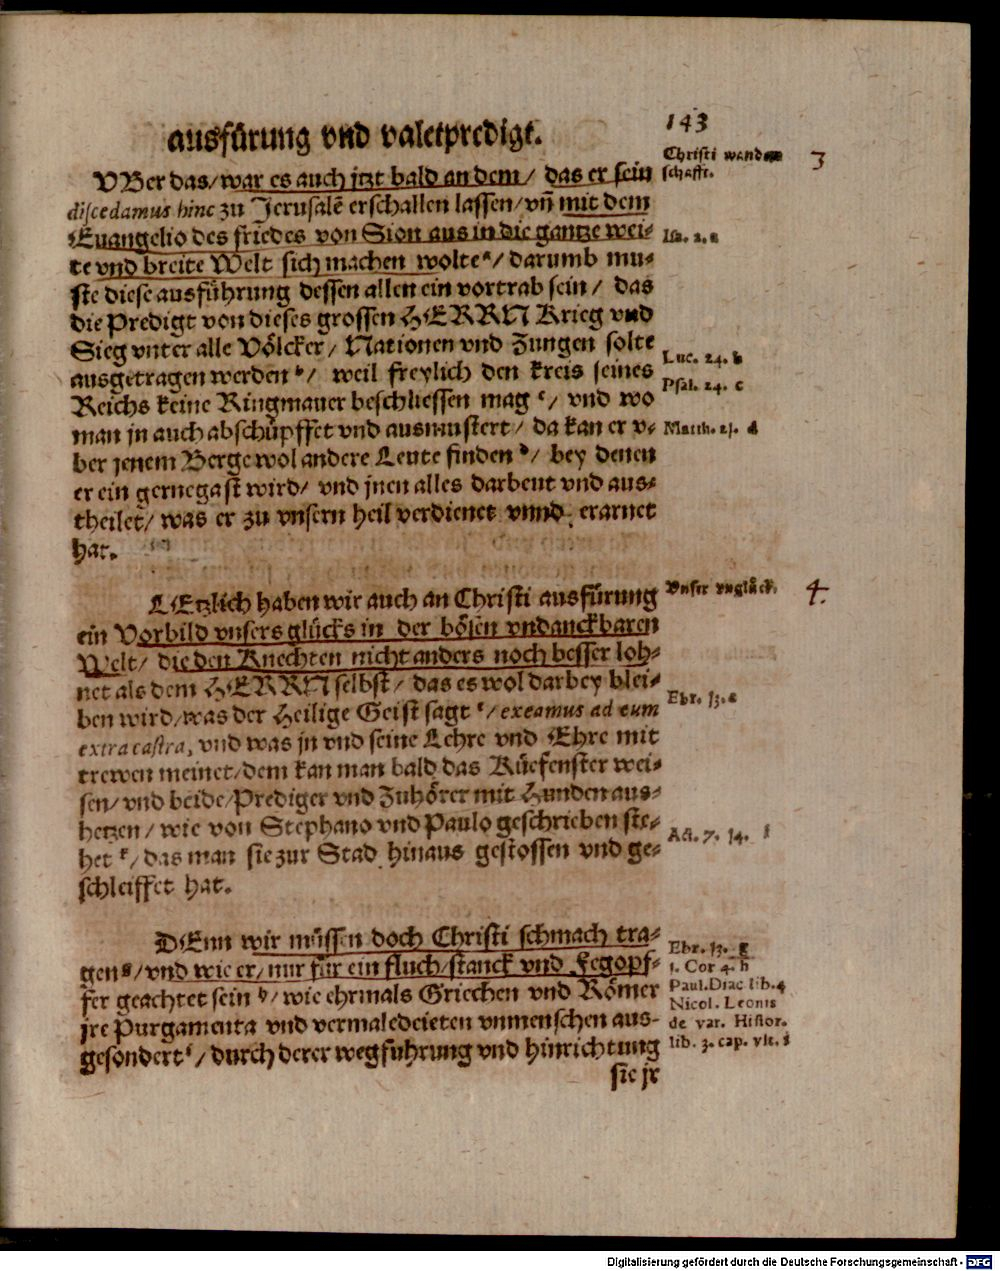 ausfürung vnd valetpredigt.
143
Christi wander
schafft.
3
VBer das/war es auch jtzt bald an dem/ das er sein
discedamus hinc zu Jerusalē erschallen lassen/vñ mit dem
Euangelio des friedes von Sion aus in die gantze wei-
Isa. 2. a
te vnd breite Welt sich machen wolte a/ darumb mu-
ste diese ausführung dessen allen ein vortrab sein/ das
die Predigt von dieses grossen HERRN Krieg vnd
Sieg vnter alle Völcker/ Nationen vnd Zungen solte
Luc. 24. b
ausgetragen werden b/ weil freylich den kreis seines
Psal. 24. c
Reichs keine Ringmauer beschliessen mag c/ vnd wo
man jn auch abschüpffet vnd ausmustert/ da kan er v-
Matth. 21. d
ber jenem Berge wol andere Leute finden d/ bey denen
er ein gernegast wird/ vnd jnen alles darbeut vnd aus-
theilet/ was er zu vnsern heil verdienet vnnd erarnet
hat.
LEtzlich haben wir auch an Christi ausfürung
Vnser vnglück.
4.
ein Vorbild vnsers glücks in der bösen vndanckbaren
Welt/ die den Knechten nicht anders noch besser loh-
net als dem HERRN selbst/ das es wol darbey blei-
Ebr. 13. e
ben wird/was der Heilige Geist sagt e/ exeamus ad eum
extra castra, vnd was jn vnd seine Lehre vnd Ehre mit
trewen meinet/dem kan man bald das Küefenster wei-
sen/ vnd beide/Prediger vnd Zuhörer mit Hunden aus-
hetzen/ wie von Stephano vnd Paulo geschrieben ste-
Act. 7. 14. f
het f/ das man sie zur Stad hinaus gestossen vnd ge-
schleiffet hat.
DEnn wir müssen doch Christi schmach tra-
Ebr. 13. g
gen g/vnd wie er/ nur für ein fluch/stanck vnd Fegopf-
1. Cor 4. h
fer geachtet sein h/ wie ehrmals Griechen vnd Römer
Paul.Diac lib.4
Nicol. Leonis
jre Purgamenta vnd vermaledeieten vnmenschen aus-
de var. Histor.
gesondert i/ durch derer wegführung vnd hinrichtung
lib. 3. cap. vlt. i
sie jr
Digitalisierung gefördert durch die Deutsche Forschungsgemeinschaft - DFG